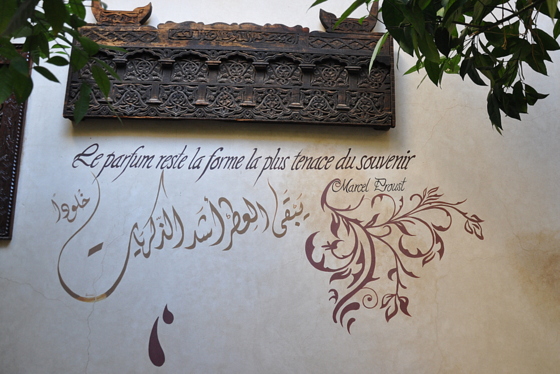 Le parfum reste la forme la plus tenace du souvenir
Marcel Proust
يَبْقَى العطرُ أشد الذكريات خلودا